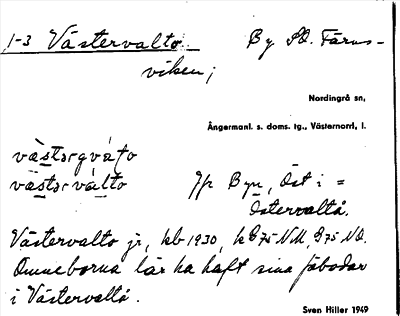 1-3 Västervalto. By SO. Färns-
viken;
Nordingrå sn,
Ångermanl. s. doms. tg., Västernord, l.
västərgvál̀to
västərvál̀to Jfr Byn, Öst i =
Östervaltå.
Västervalto jr, kb 1930, NO.
Omneborna lär ha haft sina fäbodar
i Västervaltå.
Sven Hiller 1949